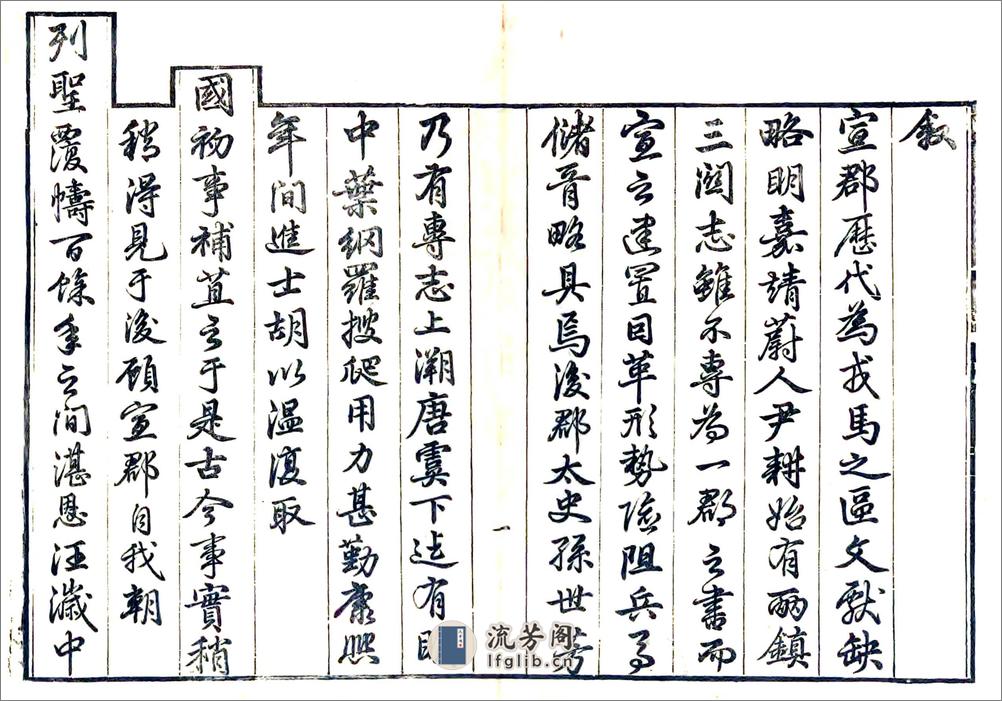 叙
宣郡歷代為戎馬之區文獻缺
略明嘉靖蔚人尹耕始有兩鎮
三關志雖不專為一郡之書而
宣之建置因革形勢險阻兵馬
儲胥略具焉後郡太史孫世芳
乃有專志上溯唐虞下迄有明
中葉網羅搜爬用力甚勤康熙
年間進士胡以温復取
國初事補苴之于是古今事實稍
稍得見于後顧宣郡自我朝
列聖覆幬百餘年之间湛恩汪濊中
一
流芳阁
lfglib.cn